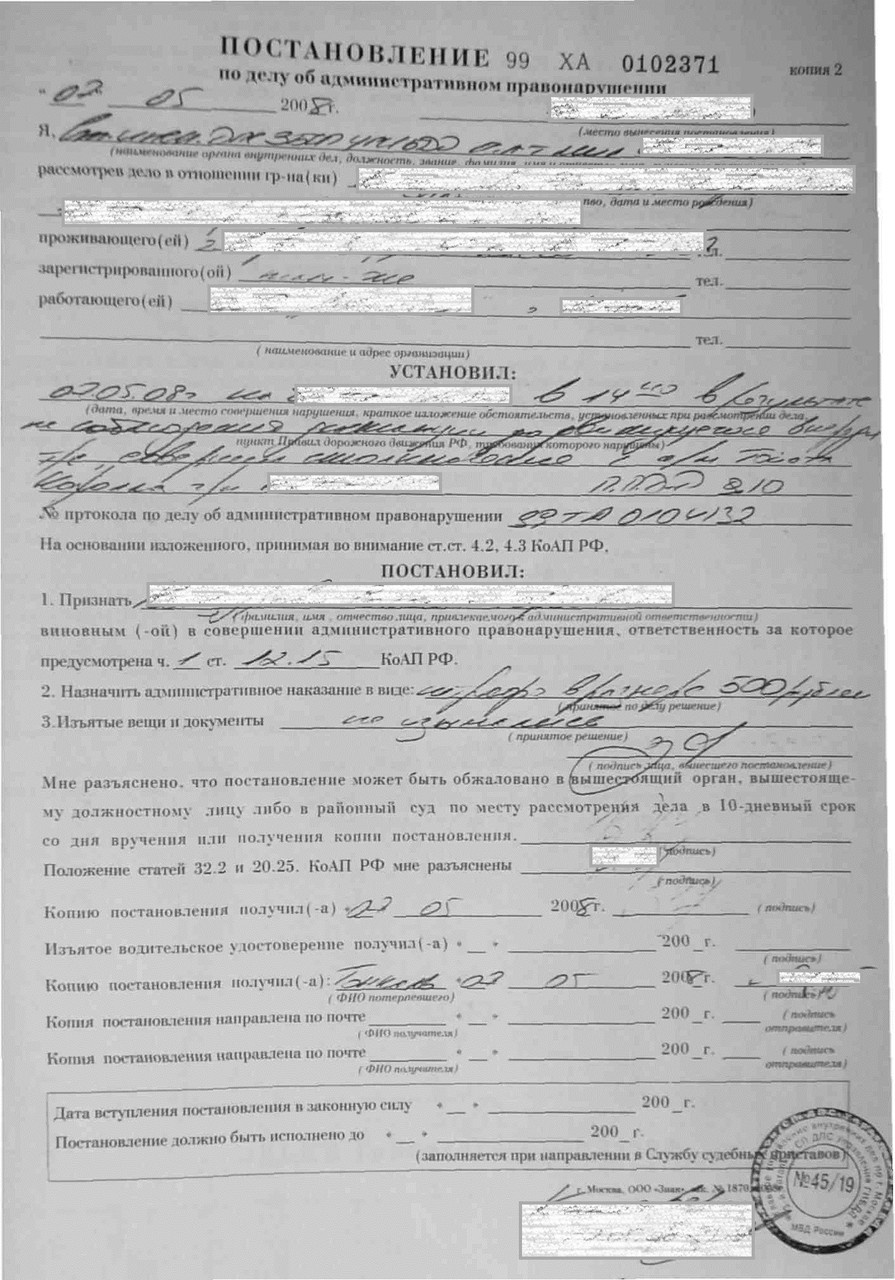 ПОСТАНОВЛЕНИЕ 99 ХА 0102371 копия 2
по делу об административном правонарушении
" 07 05 2008г.
(место вынесения постановления)
Я,
(наименование органа внутренних дел, должность, звание, фамилия,
рассмотрев дело в отношении гр-на(ки)
тво, дата и место рождения)
проживающего(ей) тел.
зарегистрированного(ой) тел.
работающего(ей)
тел.
( наименование и адрес организации)
УСТАНОВИЛ:
07.05.08г на в 14 40 в результате
(дата, время и место совершения нарушения, краткое изложение обстоятельств, установленных при рассмотрении дела,
не соблюдения дистанции до движущегося впереди
пункт Правил дорожного движения РФ, требования которого нарушены)
т/с, совершил столкновение с а/м Тойота
Королла г/н П.П.Д.Д 9.10
№ пртокола по делу об административном правонарушении 99ТА 0104132
На основании изложенного, принимая во внимание ст.ст. 4.2, 4.3 КоАП РФ,
ПОСТАНОВИЛ:
1. Признать
(фамилия, имя , отчество лица, привлекаемого к административной ответственности)
виновным (-ой) в совершении административного правонарушения, ответственность за которое
предусмотрена ч. 1 ст. 12.15 КоАП РФ.
2. Назначить административное наказание в виде: штрафа в размере 500 рублей
(принятое по делу решение)
3.Изъятые вещи и документы не изымались
( принятое решение)
( подпись лица, вынесшего постановление)
Мне разъяснено, что постановление может быть обжаловано в вышестоящий орган, вышестояще-
му должностному лицу либо в районный суд по месту рассмотрения дела в 10-дневный срок
со дня вручения или получения копии постановления.
(подпись)
Положение статей 32.2 и 20.25. КоАП РФ мне разъяснены
( подпись)
Копию постановления получил(-а) "07 05 2008г. ( подпись)
Изъятое водительское удостоверение получил(-а) " " 200 г.
( подпись)
Копию постановления получил(-а): "07 05 2008г.
( ФИО потерпевшего) ( подпись)
Копия постановления направлена по почте " " 200 г. ( подпись
( ФИО получателя) отправителя)
Копия постановления направлена по почте " " 200 г. ( подпись
( ФИО получателя) отправителя)
Дата вступления постановления в законную силу " " 200 г.
Постановление должно быть исполнено до " " 200 г.
(заполняется при направлении в Службу судебных приставов)
г. Москва, ООО «Знак»
№45/19
МВД России